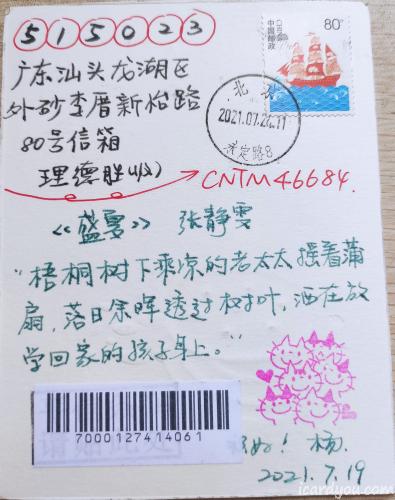 515023
80分
中国邮政
CHINA
广东汕头龙湖区
外砂李厝新怡路
80号信箱
理德胜(收)
CNTM46684.
北京
2021.07.2 .11
永定路8
《盛夏》 张静雯
"梧桐树下乘凉的老太太摇着蒲
扇,落日余晖透过树叶,洒在放
学回家的孩子身上。"
7000127414061
好! 杨.
2021.7.19
icardyou.com